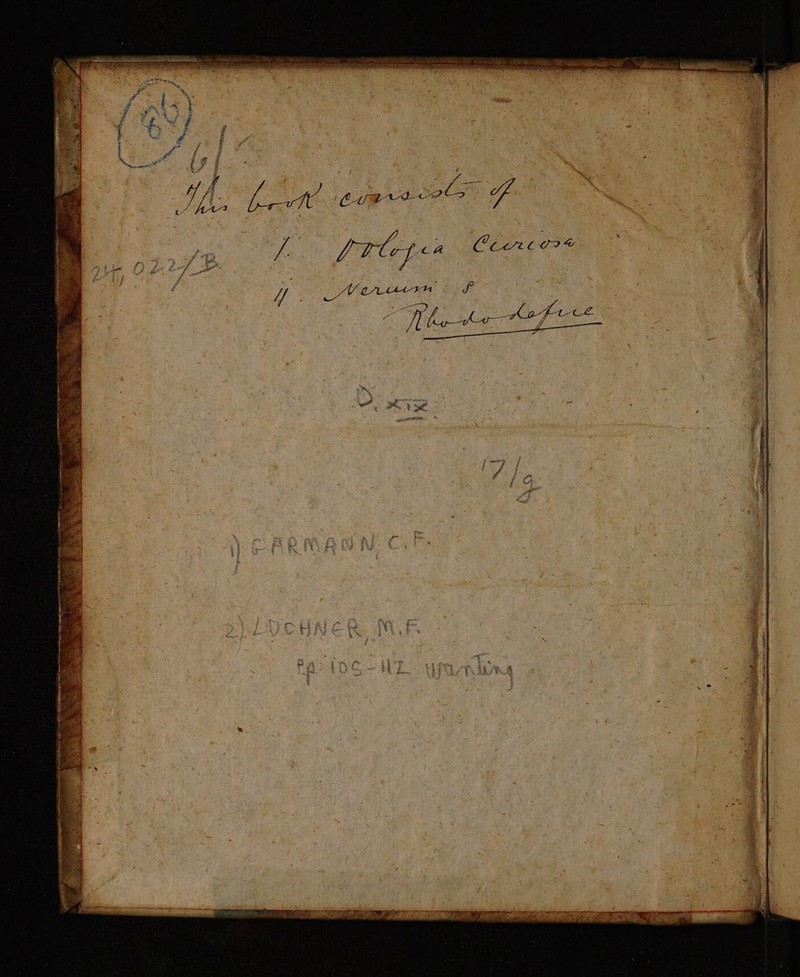 6/
This book consists of
24,022/B
I. Oologia Curiosa
II. Nerium &
Rhododafne
D. XIX
17/9
1) GARMANN, C.F.
2) LOCHNER, M.F.
pp. 106-112 wanting